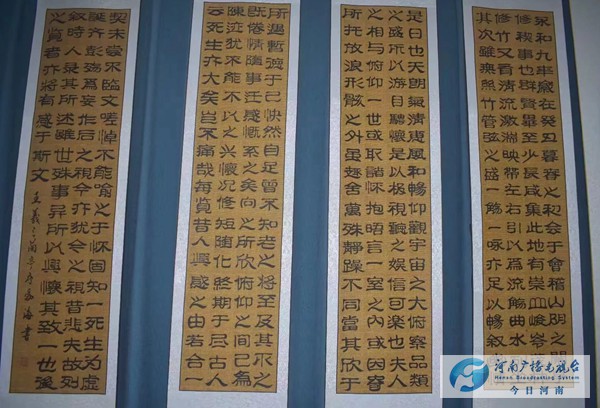 永和九年歲在癸丑暮春之初會于會稽山陰之蘭
修禊事也群賢畢至少長咸集此地有崇山峻嶺
修竹又有清流激湍映帶左右引以為流觴曲水
其次雖無絲竹管弦之盛一觴一詠亦足以暢敘
是日也天朗氣清惠風和暢仰觀宇宙之大俯察品類
之盛所以游目騁懷足以極視聽之娛信可樂也夫人
之相與俯仰一世或取諸懷抱晤言一室之內或因寄
所托放浪形骸之外雖趣舍萬殊靜躁不同當其欣于
所遇暫得于己快然自足曾不知老之將至及其所之
既倦情隨事遷感慨系之矣向之所欣俯仰之間已為
陳迹猶不能不以之興懷況修短隨化終期于盡古人
云死生亦大矣豈不痛哉每覽昔人興感之由若合一
契未嘗不臨文嗟悼不能喻之于懷固知一死生為虛
誕齊彭殤為妄作后之視今亦猶今之視昔悲夫故列
敘時人錄其所述雖世殊事異所以興懷其致一也後
之覽者亦將有感于斯文
王羲之蘭亭序 海書
河南广播电视台
Henan Broadcasting System
今日河南